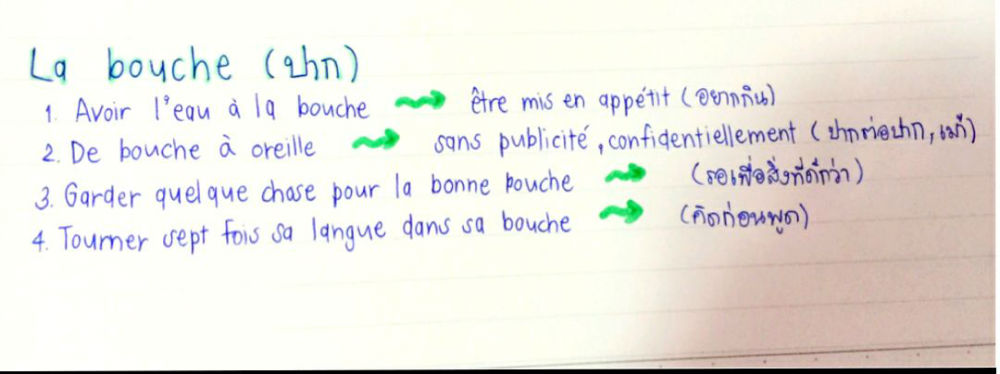 La bouche (ปาก)
1. Avoir l'eau à la bouche être mis en appétit (อยากกิน)
2. De bouche à oreille sans publicité, confidentiellement (ปากต่อปาก, เม้า)
3. Garder quelque chose pour la bonne bouche (รอเพื่อสิ่งที่ดีกว่า)
4. Tourner sept fois sa langue dans sa bouche (คิดก่อนพูด)